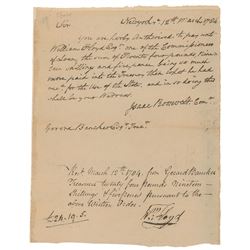 Sir Newyork 12th March 1784
you are hereby Authorised to pay unto
William Floyd Esqr one of the Commissioners
of Loans, the sum of Twenty four pounds, Nine
teen Shillings and five pence being so much
more paid into the Treasury than what he had
for the Use of the State, and in so doing this
shall be your Warrant
Isaac Roosevelt
Gerard Bancker Esqr Treasr
Recd March 12th 1784 from Gerard Bancker
Treasurer twenty four pounds Nineteen
Shillings & five pence pursuant to the
above
£24.19.5. Wm Floyd